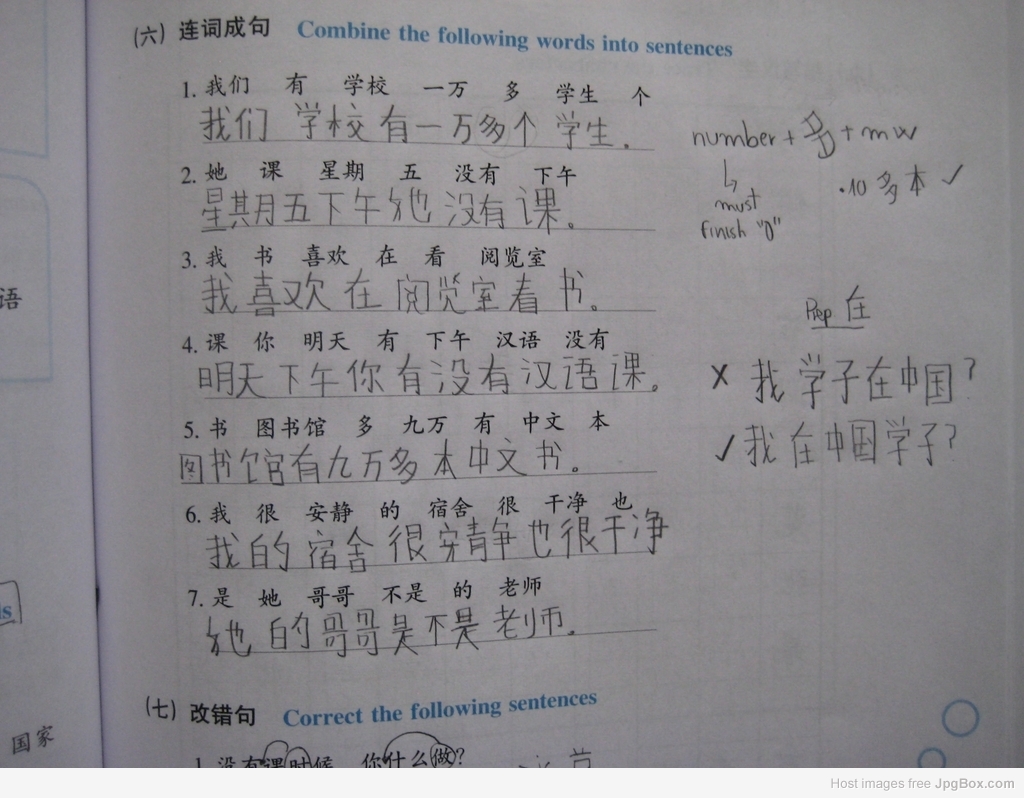 (六) 连词成句 Combine the following words into sentences
1. 我们 有 学校 一万 多 学生 个
我们 学校有一万多个 学生.
2. 她 课 星期 五 没有 下午
星期五下午她没有课。
3. 我 书 喜欢 在 看 阅览室
我喜欢在阅览室看书。
4. 课 你 明天 有 下午 汉语 没有
明天下午你有没有汉语课。
5. 书 图书馆 多 九万 有 中文 本
图书馆有九万多本中文书。
6. 我 很 安静 的 宿舍 很 干净 也
我的宿舍很安静也很干净
7. 是 她 哥哥 不是 的 老师
她的哥哥是不是老师。
number + 多 + mw
↳ must
finish "0"
·10 多本 ✓
Prep 在
✗ 我学子在中国?
✓ 我在中国学子?
(七) 改错句 Correct the following sentences
1. 没有课时候 你什么做?
语
ls
国家
Host images free JpgBox.com